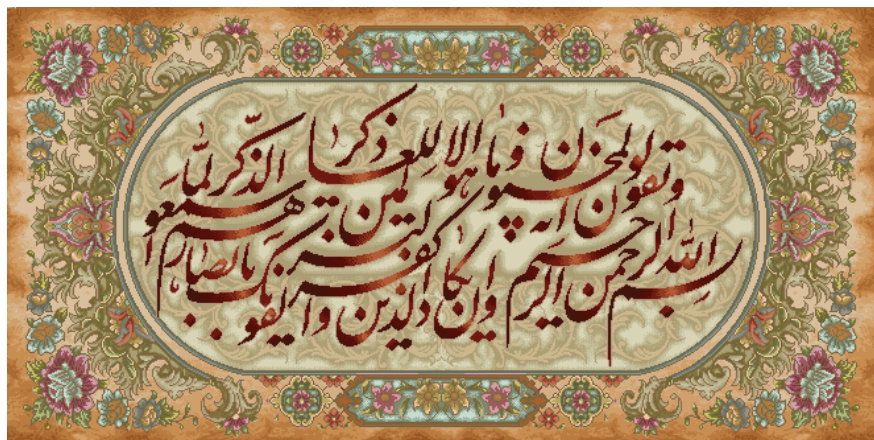 بسم الله الرحمن الرحیم وان یکاد الذین کفروا لیزلقونک بابصارهم
لما سمعوا الذکر ویقولون انه لمجنون وما هو الا ذکر للعالمین